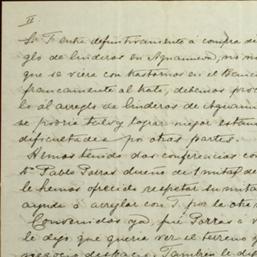 II.
Sr. F. entre definitivamente á compra de
glo de linderos en Aguanueva,
que se viera con trastornos en el
francamente al trato, debemos
lo al arreglo de linderos de
se podria talvez lograr mejor
dificultades por otras partes.
Hemos tenido dos conferencias con
Dn Pablo Porras dueño de 1 mitad de
le hemos ofrecido respetar su
ayuda á arreglar con J. por la otra
Convenidos ya, fué Porras á
le dijo que queria ver el terreno y
negocio despacio. Tambien le dijo